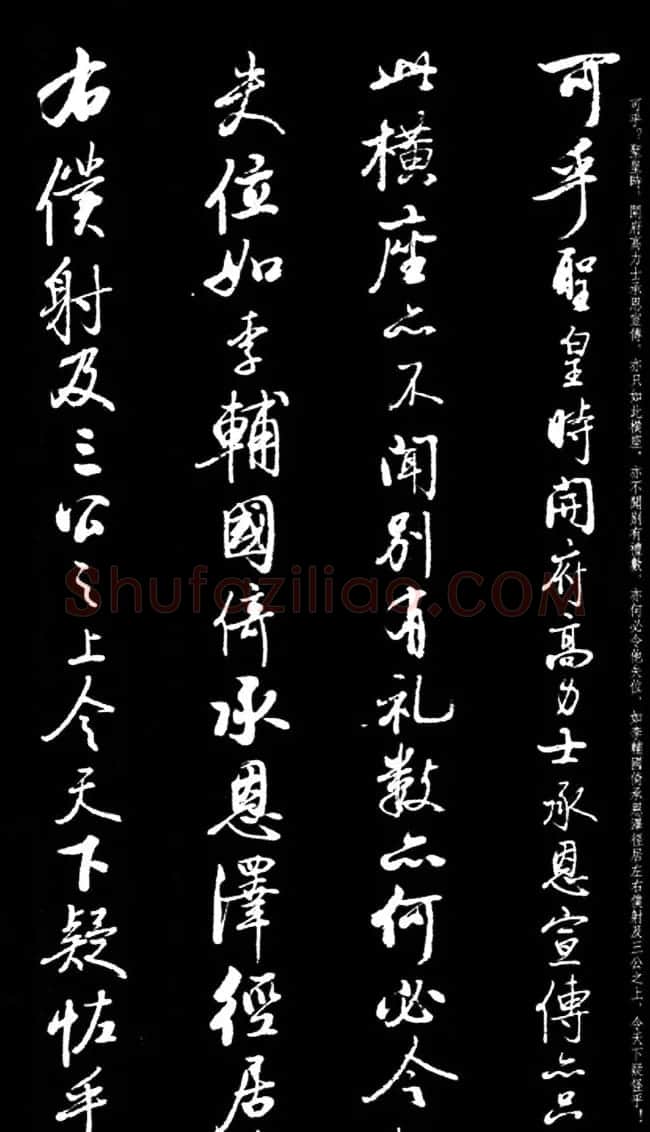 可乎？聖皇時，開府高力士承恩宣傳，亦只如此橫座，亦不聞別有禮數，亦何必令他失位，如李輔國倚承恩澤徑居左右僕射及三公之上，令天下疑怪乎！
可乎聖皇時開府高力士承恩宣傳亦只
此橫座亦不聞別有礼數亦何必令
失位如李輔國倚承恩澤徑居
右僕射及三公之上令天下疑怪乎
Shufaziliao.COM